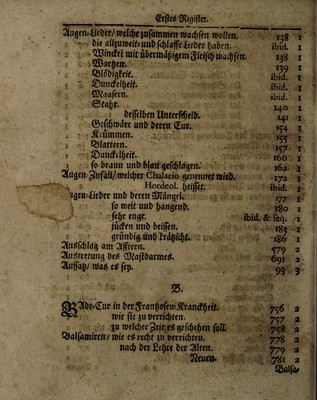 Erstes Register.
Augen-Lieder/ welche zusammen wachsen wollen. 138 1
die allzuweit- und schlaffe Lieder haben. ibid.
Winckel mit übermäßigem Fleisch wachsen. 138 1
Wartzen. 139 1
Blödigkeit. ibid. 1
Dunckelheit. ibid. 1
Maasern. ibid. 1
Stahr. 140 1
desselben Unterscheid. 141 1
Geschwäre und deren Cur. 154 1
Krümmen. 155 1
Blattern. 157 1
Dunckelheit. 160 1
so braun und blau geschlagen. 162 1
Augen Zufäll/ welcher Chalazio genennet wird. 172 1
Hordeol. heisset. ibid. 1
Augen-Lieder und deren Mängel. 177 1
so weit und hangend. 180 1
sehr enge. ibid. & seq. 1
jücken und beissen. 183 1
gründig und krätzicht. 186 1
Ausschlag am Afftern. 579 2
Austretung des Mastdarmes. 691 2
Aussatz/ was es sey. 93 3
B.
BAde-Cur in der Frantzosen-Kranckheit. 756 2
wie sie zu verrichten. 757 2
zu welcher Zeit es geschehen soll. 758 2
Balsamiren/ wie es recht zu verrichten. 778 2
nach der Lehre der Alten. 779 2
Neuen. 781 2
Balsa-